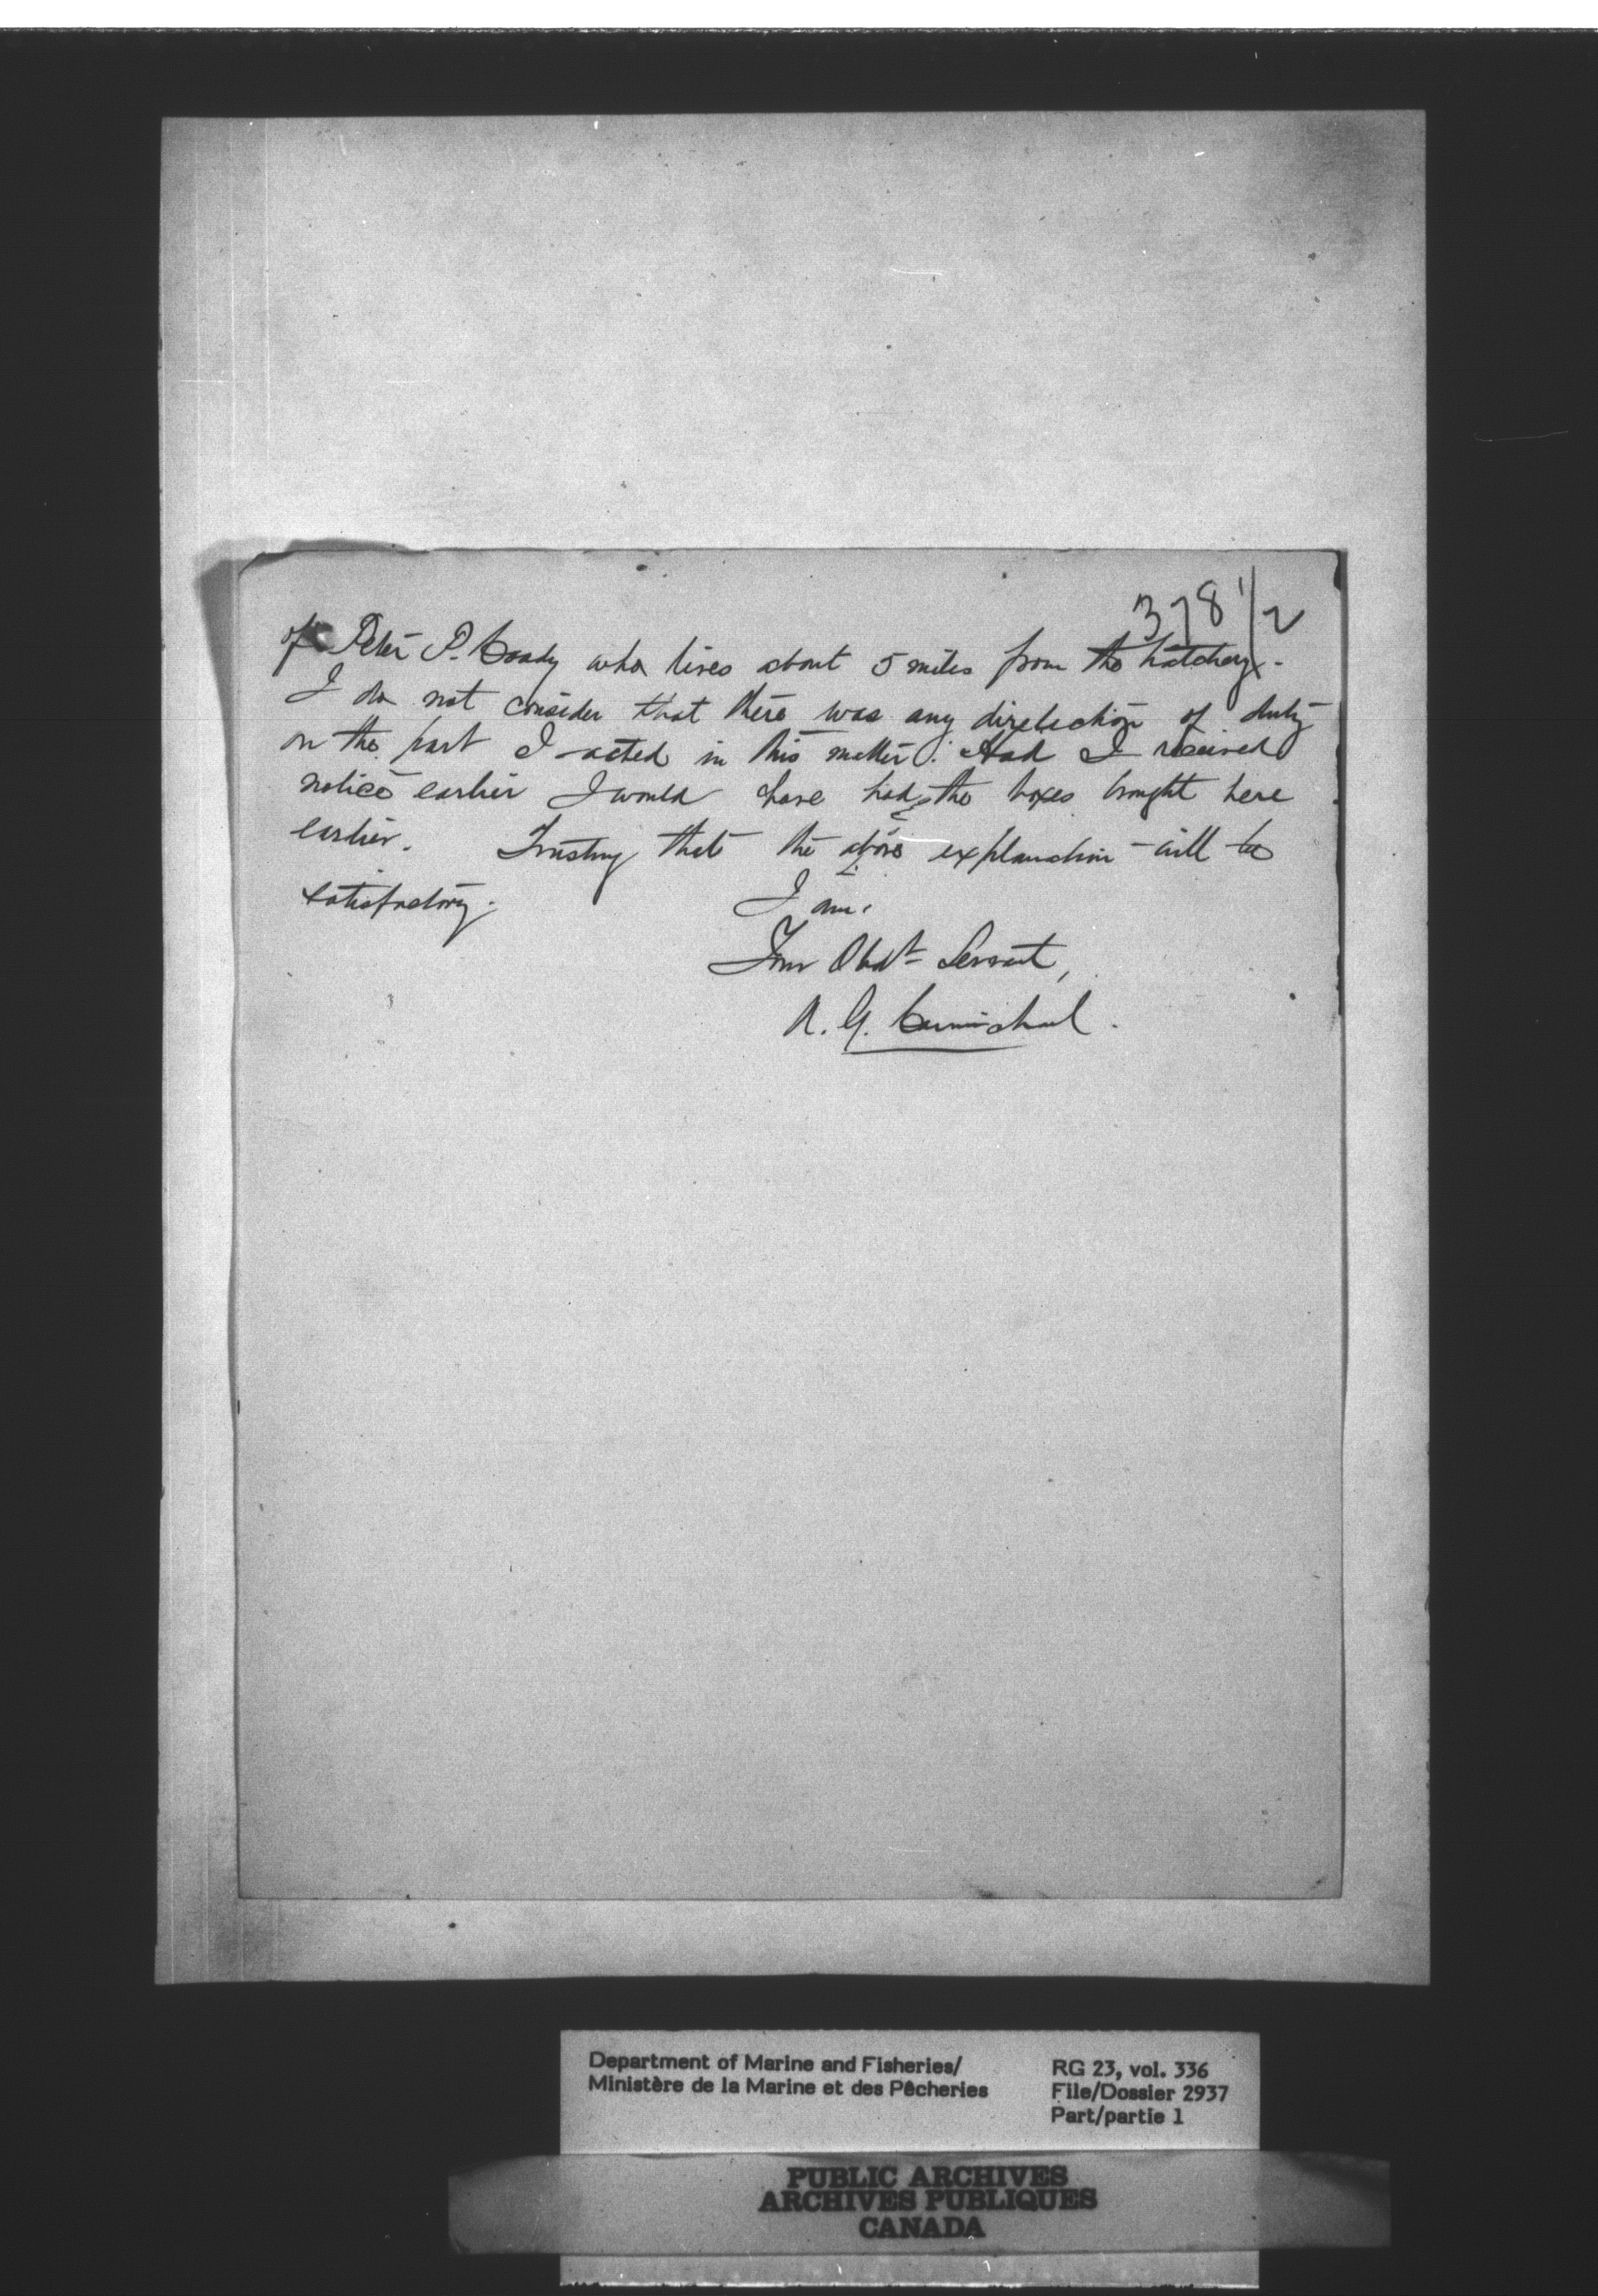 378 1/2
of Peter P. Coady who lives about 5 miles from the hatchery.
I do not consider that there was any direlection of duty
on the part I acted in this matter. Had I received
notice earlier I would have had the boxes brought here
earlier. Trusting that the above explanation will be
satisfactory.
I am.
Your Obdt Servant,
A. G. Carmichael.
Department of Marine and Fisheries/
Ministère de la Marine et des Pêcheries
RG 23, vol. 336
File/Dossier 2937
Part/partie 1
PUBLIC ARCHIVES
ARCHIVES PUBLIQUES
CANADA